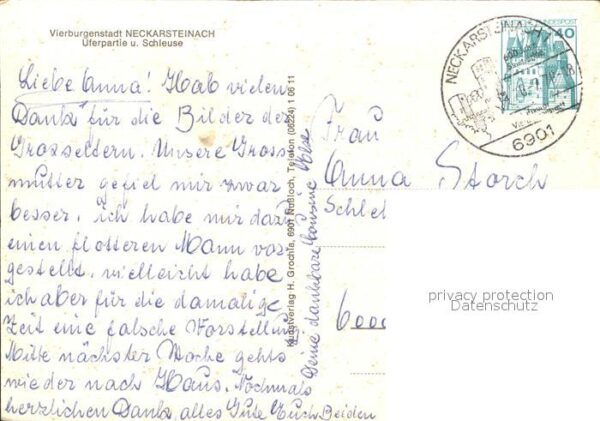 Vierburgenstadt NECKARSTEINACH
Uferpartie u. Schleuse
Liebe Anna! Hab vielen
Dank für die Bilder der
Grosseltern. Unsere Gross
mutter gefiel mir zwar
besser, ich habe mir dazu
einen flotteren Mann vor
gestellt, vielleicht habe
ich aber für die damalige
Zeit eine falsche Vorstellung
Mitte nächster Woche gehts
wieder nach Haus. Nochmals
herzlichen Dank, alles Gute Euch Beiden
Deine dankbare Cousine
Kunstverlag H. Grochla, 6901 Nußloch, Telefon (06224) 1 06 11
NECKARSTEINACH
6901
BUNDESPOST
40
Frau
Anna Storch
Schle
6000
privacy protection
Datenschutz